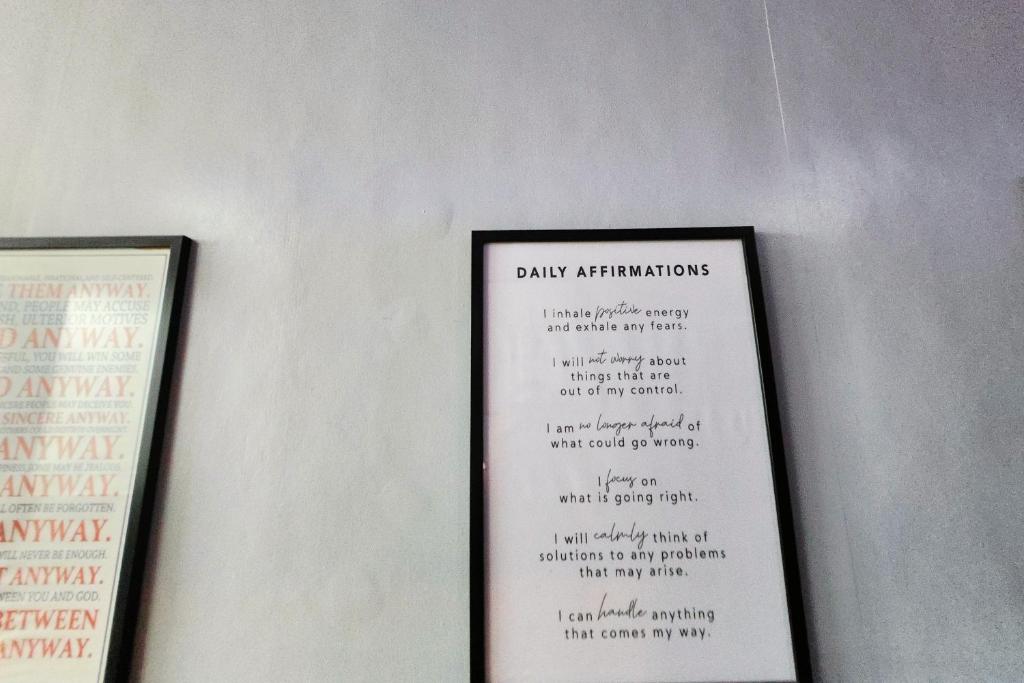 THEM ANYWAY.
PEOPLE MAY ACCUSE
ULTERIOR MOTIVES
ANYWAY.
YOU WILL WIN SOME
AND SOME GENUINE ENEMIES.
ANYWAY.
PEOPLE MAY DECEIVE YOU.
SINCERE ANYWAY.
ANYWAY.
SOME MAY BE JEALOUS.
ANYWAY.
OFTEN BE FORGOTTEN.
ANYWAY.
WILL NEVER BE ENOUGH.
ANYWAY.
YOU AND GOD.
BETWEEN
ANYWAY.
DAILY AFFIRMATIONS
I inhale positive energy
and exhale any fears.
I will not worry about
things that are
out of my control.
I am no longer afraid of
what could go wrong.
I focus on
what is going right.
I will calmly think of
solutions to any problems
that may arise.
I can handle anything
that comes my way.